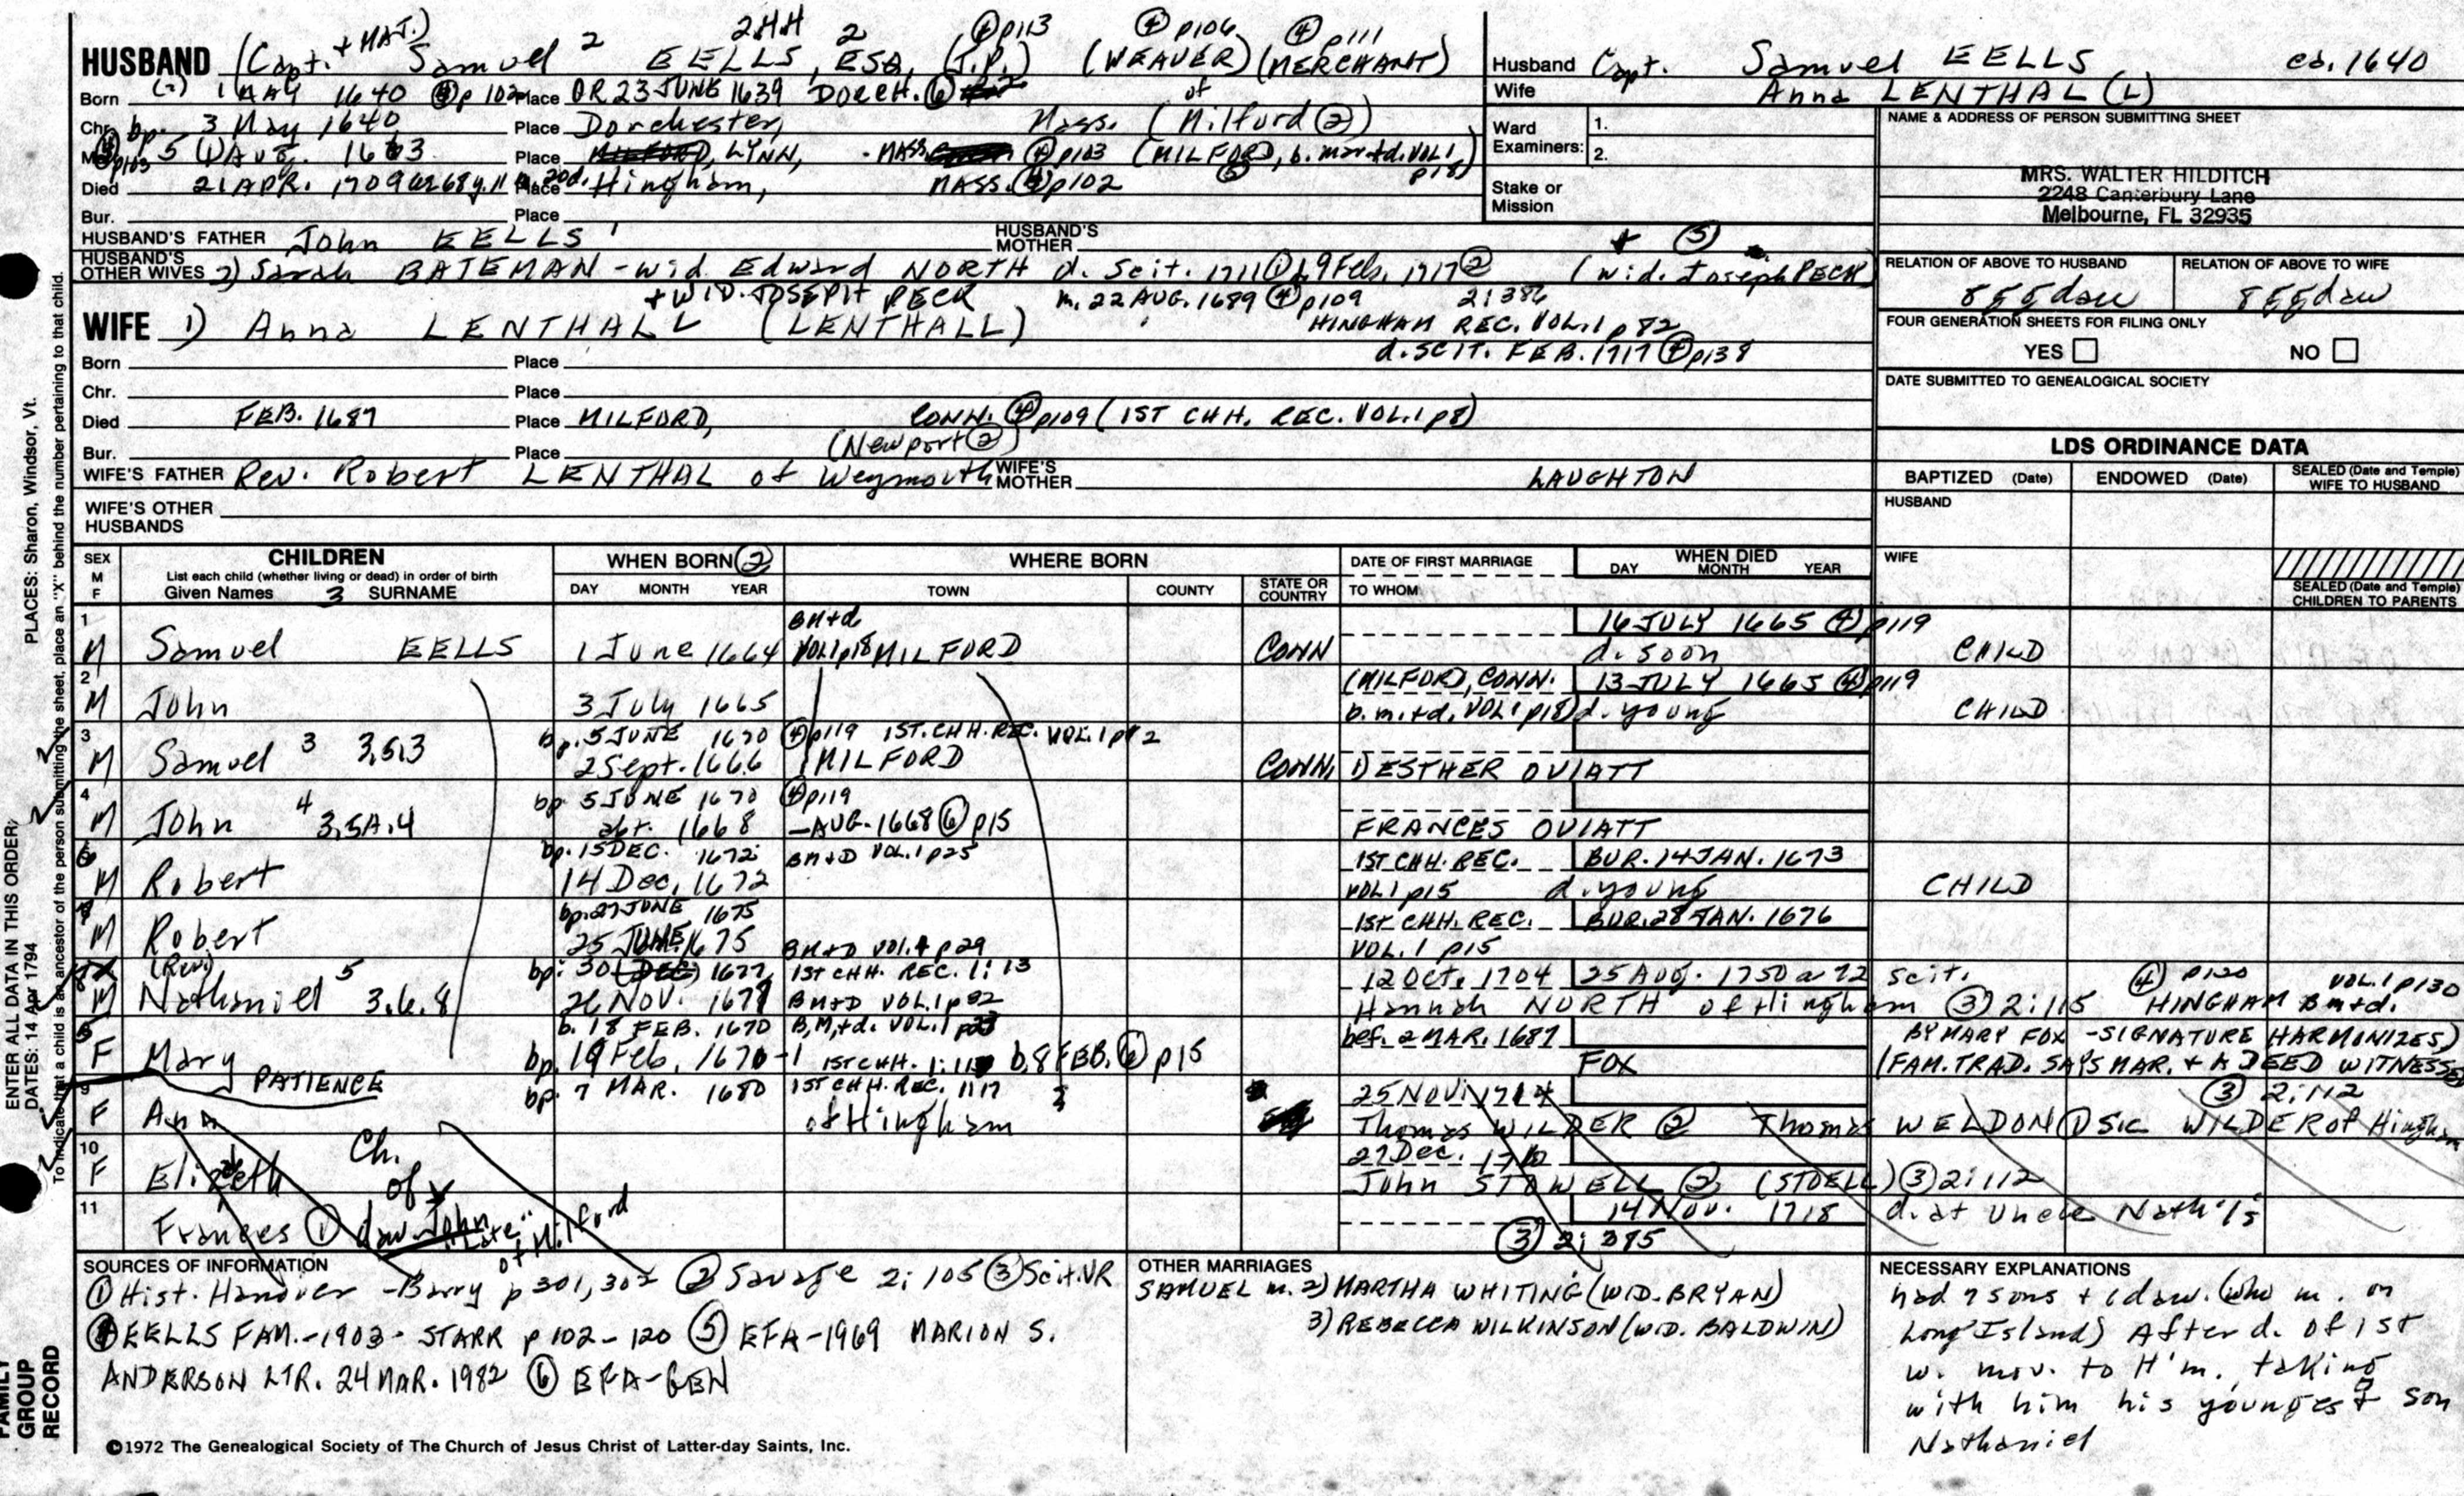 2HH ④p113 ④p106 ④p111
HUSBAND (Capt. + MAJ.) Samuel 2 EELLS 2, ESQ, (J.P.) (WEAVER) (MERCHANT)
Born (2) 1 MAY 1640 ④p 102 Place OR 23 JUNE 1639 DORCH. ⑥ of
Chr. bp. 3 May 1640 Place Dorchester, Mass. (Milford ②)
p103 5 (1) Aug. 1663 Place LYNN, MASS. ④p103 (MILFORD, b. mar+d. VOL 1 p18)
Died 21 APR. 1709 Place Hingham, MASS. ④p102 ⑤
Bur. Place
HUSBAND'S FATHER John EELLS 1 HUSBAND'S MOTHER
+ ⑤
HUSBAND'S OTHER WIVES 2) Sarah BATEMAN - wid. Edward NORTH d. Scit. 1711 ① 9 Feb. 1717 ② (wid. Joseph PECK
+ WID. JOSEPH PECK m. 22 AUG. 1689 ④p109 2:386
WIFE 1) Anna LENTHALL (LENTHALL) HINGHAM REC. VOL. 1 p 82
d. SCIT. FEB. 1717 ④p138
Born Place
Chr. Place
Died FEB. 1687 Place MILFORD, CONN. ④p109 (1ST CHH. REC. VOL. 1 p8)
Bur. Place (Newport ②)
WIFE'S FATHER Rev. Robert LENTHAL of Weymouth WIFE'S MOTHER LAUGHTON
WIFE'S OTHER HUSBANDS
Husband Capt. Samuel EELLS ca. 1640
Wife Anna LENTHAL (L)
Ward Examiners: 1.
2.
Stake or Mission
NAME & ADDRESS OF PERSON SUBMITTING SHEET
MRS. WALTER HILDITCH
2248 Canterbury Lane
Melbourne, FL 32935
RELATION OF ABOVE TO HUSBAND RELATION OF ABOVE TO WIFE
8 gg dau 8 gg dau
FOUR GENERATION SHEETS FOR FILING ONLY
YES NO
DATE SUBMITTED TO GENEALOGICAL SOCIETY
LDS ORDINANCE DATA
BAPTIZED (Date) ENDOWED (Date) SEALED (Date and Temple) WIFE TO HUSBAND
HUSBAND
WIFE
SEALED (Date and Temple) CHILDREN TO PARENTS
SEX M F CHILDREN WHEN BORN ② WHERE BORN DATE OF FIRST MARRIAGE WHEN DIED
List each child (whether living or dead) in order of birth
Given Names 3 SURNAME DAY MONTH YEAR TOWN COUNTY STATE OR COUNTRY TO WHOM DAY MONTH YEAR
1 BM+d 16 JULY 1665 ④p119
M Samuel EELLS 1 June 1664 VOL 1 p18 MILFORD CONN d. soon CHILD
2 (MILFORD, CONN. 13 JULY 1665 ④p119
M John 3 July 1665 b. m. +d. VOL 1 p18) d. young CHILD
3 bp. 5 JUNE 1670 ④p119 1ST. CHH. REC. VOL. 1 p 2
M Samuel 3 3,5,3 2 Sept. 1666 MILFORD CONN. 1) ESTHER OVIATT
4 bp 5 JUNE 1670 ④p119
M John 4 3,5A,4 abt. 1668 —AUG. 1668 ⑥ p15 FRANCES OVIATT
bp. 15 DEC. 1672 BM+D VOL. 1 p25 1ST CHH. REC. BUR. 14 JAN. 1673
M Robert 14 Dec. 1672 VOL 1 p15 d. young CHILD
bp. 27 JUNE 1675 1ST CHH. REC. BUR. 28 JAN. 1676
M Robert 25 JUNE 1675 BM+D VOL. 1 p29 VOL. 1 p15
(Rev) bp: 30 (DEC) 1677 1ST CHH. REC. 1:13 12 Oct. 1704 25 Aug. 1750 a 72 Scit. ④ p120 VOL. 1 p130
M Nathaniel 5 3.6.8 26 NOV. 1677 BM+D VOL. 1 p32 Hannah NORTH of Hingham ③ 2:115 HINGHAM Bm+d.
b. 18 FEB. 1670 B, M, +d. VOL. 1 p23 bef. 2 MAR. 1687 BY MARY FOX -SIGNATURE HARMONIZES)
F Mary bp. 19 Feb. 1670-1 1ST CHH. 1:11 b. 8 FEB. ⑥ p15 FOX (FAM. TRAD. SAYS MAR. + A DEED WITNESS
PATIENCE bp. 7 MAR. 1680 1ST CHH. REC. 1:17
9 25 Nov. 1714 ③ 2:112
F Ann of Hingham Thomas WILDER ② Thomas WELDON ① Sic WILDER of Hingham
10 Ch. 27 Dec.
F Elizbeth of John STOWELL ② (STOELL) ③ 2:112
11 14 Nov. 1718 d. at Uncle Nath'l's
Frances ① dau John "Late" of Milford ③ 2:385
SOURCES OF INFORMATION
① Hist. Hanover - Barry p 301, 302 ② Savage 2:105 ③ Scit. VR
④ EELLS FAM.-1903- STARR p 102-120 ⑤ EFA-1969 MARION S.
ANDERSON LTR. 24 MAR. 1982 ⑥ EFA-GEN
OTHER MARRIAGES
SAMUEL m. 2) MARTHA WHITING (WID. BRYAN)
3) REBECCA WILKINSON (WID. BALDWIN)
NECESSARY EXPLANATIONS
had 7 sons + 1 daw. (who m. on
Long Island) After d. of 1st
w. mov. to H'm. taking
with him his youngest son
Nathaniel
©1972 The Genealogical Society of The Church of Jesus Christ of Latter-day Saints, Inc.
ENTER ALL DATA IN THIS ORDER:
DATES: 14 Apr 1794 PLACES: Sharon, Windsor, Vt.
To indicate that a child is an ancestor of the person submitting the sheet, place an "X" behind the number pertaining to that child.
FAMILY GROUP RECORD